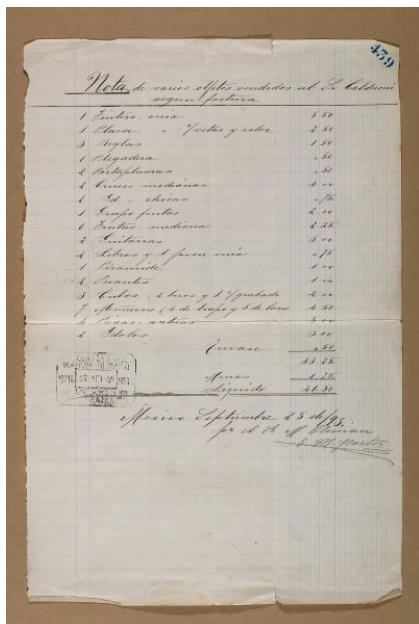 439
Nota de varios objetos vendidos al Sr. Calderoni
segun factura
1 Tintero onix 5 50
1 Placa " 7 vetas y color 2 50
3 Reglas 1 50
1 Plegadera " 50
2 Portaplumas " 50
2 Cruces medianas 4 00
2 Id. chicas " 75
1 Grupo frutas 2 00
6 Frutas mediana 2 25
2 Guitarras 3 00
2 Libros y 1 onix " 75
1 Piramide 1 00
2 Guantes 1 00
3 Cubos (2 lisos y 1 grabado 2 00
7 Muñecos (4 de trapo y 3 de barro 4 50
4 Piezas 5 00
2 Idolos 3 00
Envase " 50
43 25
Menos 1 75
Líquido 41 50
Mexico Septiembre 28 de/93.